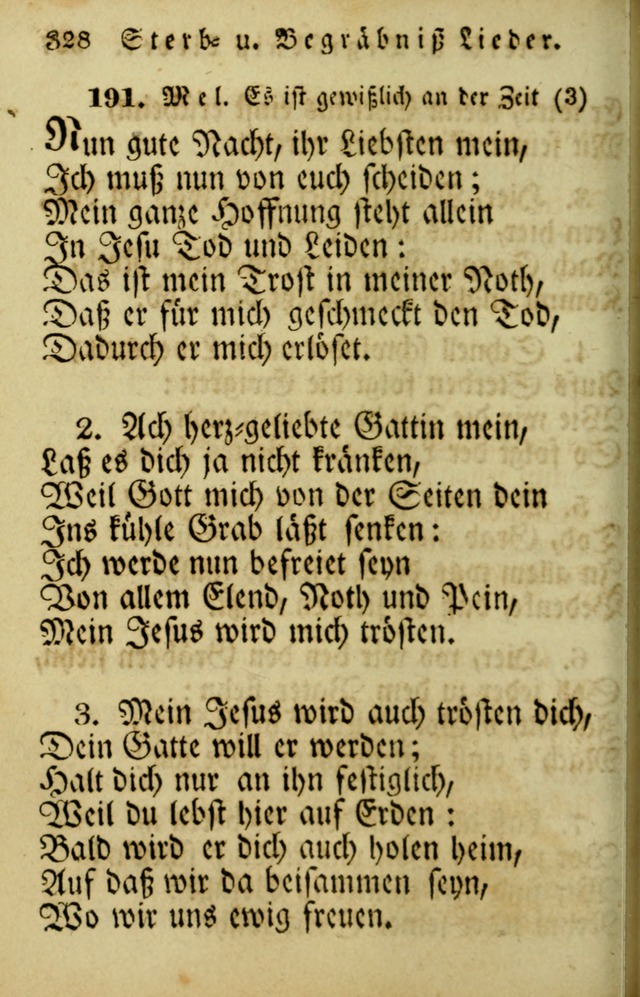 328 Sterb- u. Begräbniß Lieder.
191. Mel. Es ist gewißlich an der Zeit (3)
Nun gute Nacht, ihr Liebsten mein,
Ich muß nun von euch scheiden;
Mein ganze Hoffnung steht allein
In Jesu Tod und Leiden:
Das ist mein Trost in meiner Noth,
Daß er für mich geschmeckt den Tod,
Dadurch er mich erlöset.
2. Ach herz-geliebte Gattin mein,
Laß es dich ja nicht kränken,
Weil Gott mich von der Seiten dein
Ins kühle Grab läßt senken:
Ich werde nun befreiet seyn
Von allem Elend, Noth und Pein,
Mein Jesus wird mich trösten.
3. Mein Jesus wird auch trösten dich,
Dein Gatte will er werden;
Halt dich nur an ihn festiglich,
Weil du lebst hier auf Erden:
Bald wird er dich auch holen heim,
Auf daß wir da beisammen seyn,
Wo wir uns ewig freuen.